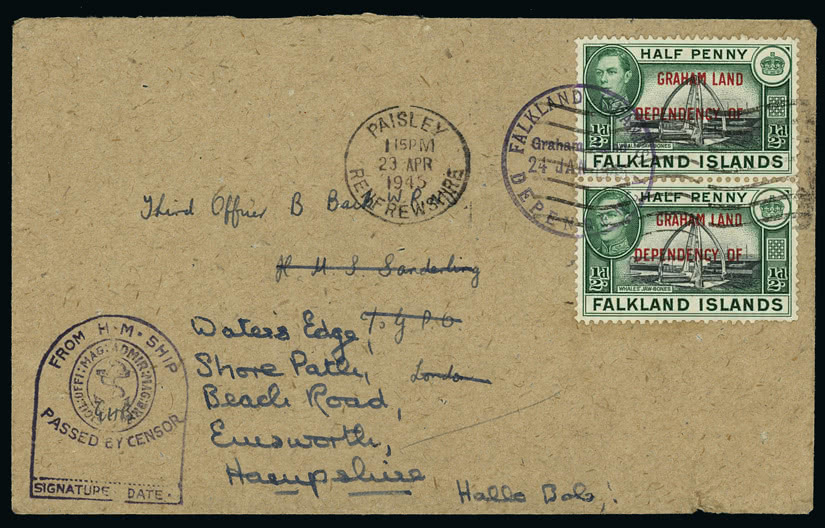 HALF PENNY
GRAHAM LAND
DEPENDENCY OF
½d
½d
WHALES' JAW-BONES
FALKLAND ISLANDS
HALF PENNY
GRAHAM LAND
DEPENDENCY OF
½d
½d
WHALES' JAW-BONES
FALKLAND ISLANDS
FALKLAND
Graham
24 JAN
DEPEN
PAISLEY
1 15PM
23 APR
1945
RENFREWSHIRE
Third Officer B
H M S Sanderling
Waters Edge, G P O
Shore Path, London
Beach Road,
Emsworth,
Hampshire
Hallo Bob,!
FROM H·M·SHIP
PASSED BY CENSOR
SIGNATURE DATE